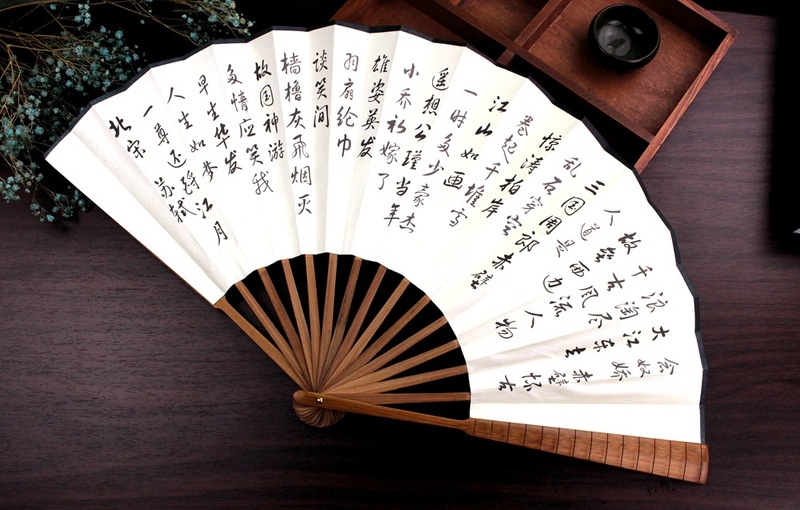 念奴娇 赤壁怀古
大江东去
浪淘尽
千古风流人物
故垒西边
人道是
三国周郎赤壁
乱石穿空
惊涛拍岸
卷起千堆雪
江山如画
一时多少豪杰
遥想公瑾当年
小乔初嫁了
雄姿英发
羽扇纶巾
谈笑间
樯橹灰飞烟灭
故国神游
多情应笑我
早生华发
人生如梦
一尊还酹江月
北宋 苏轼